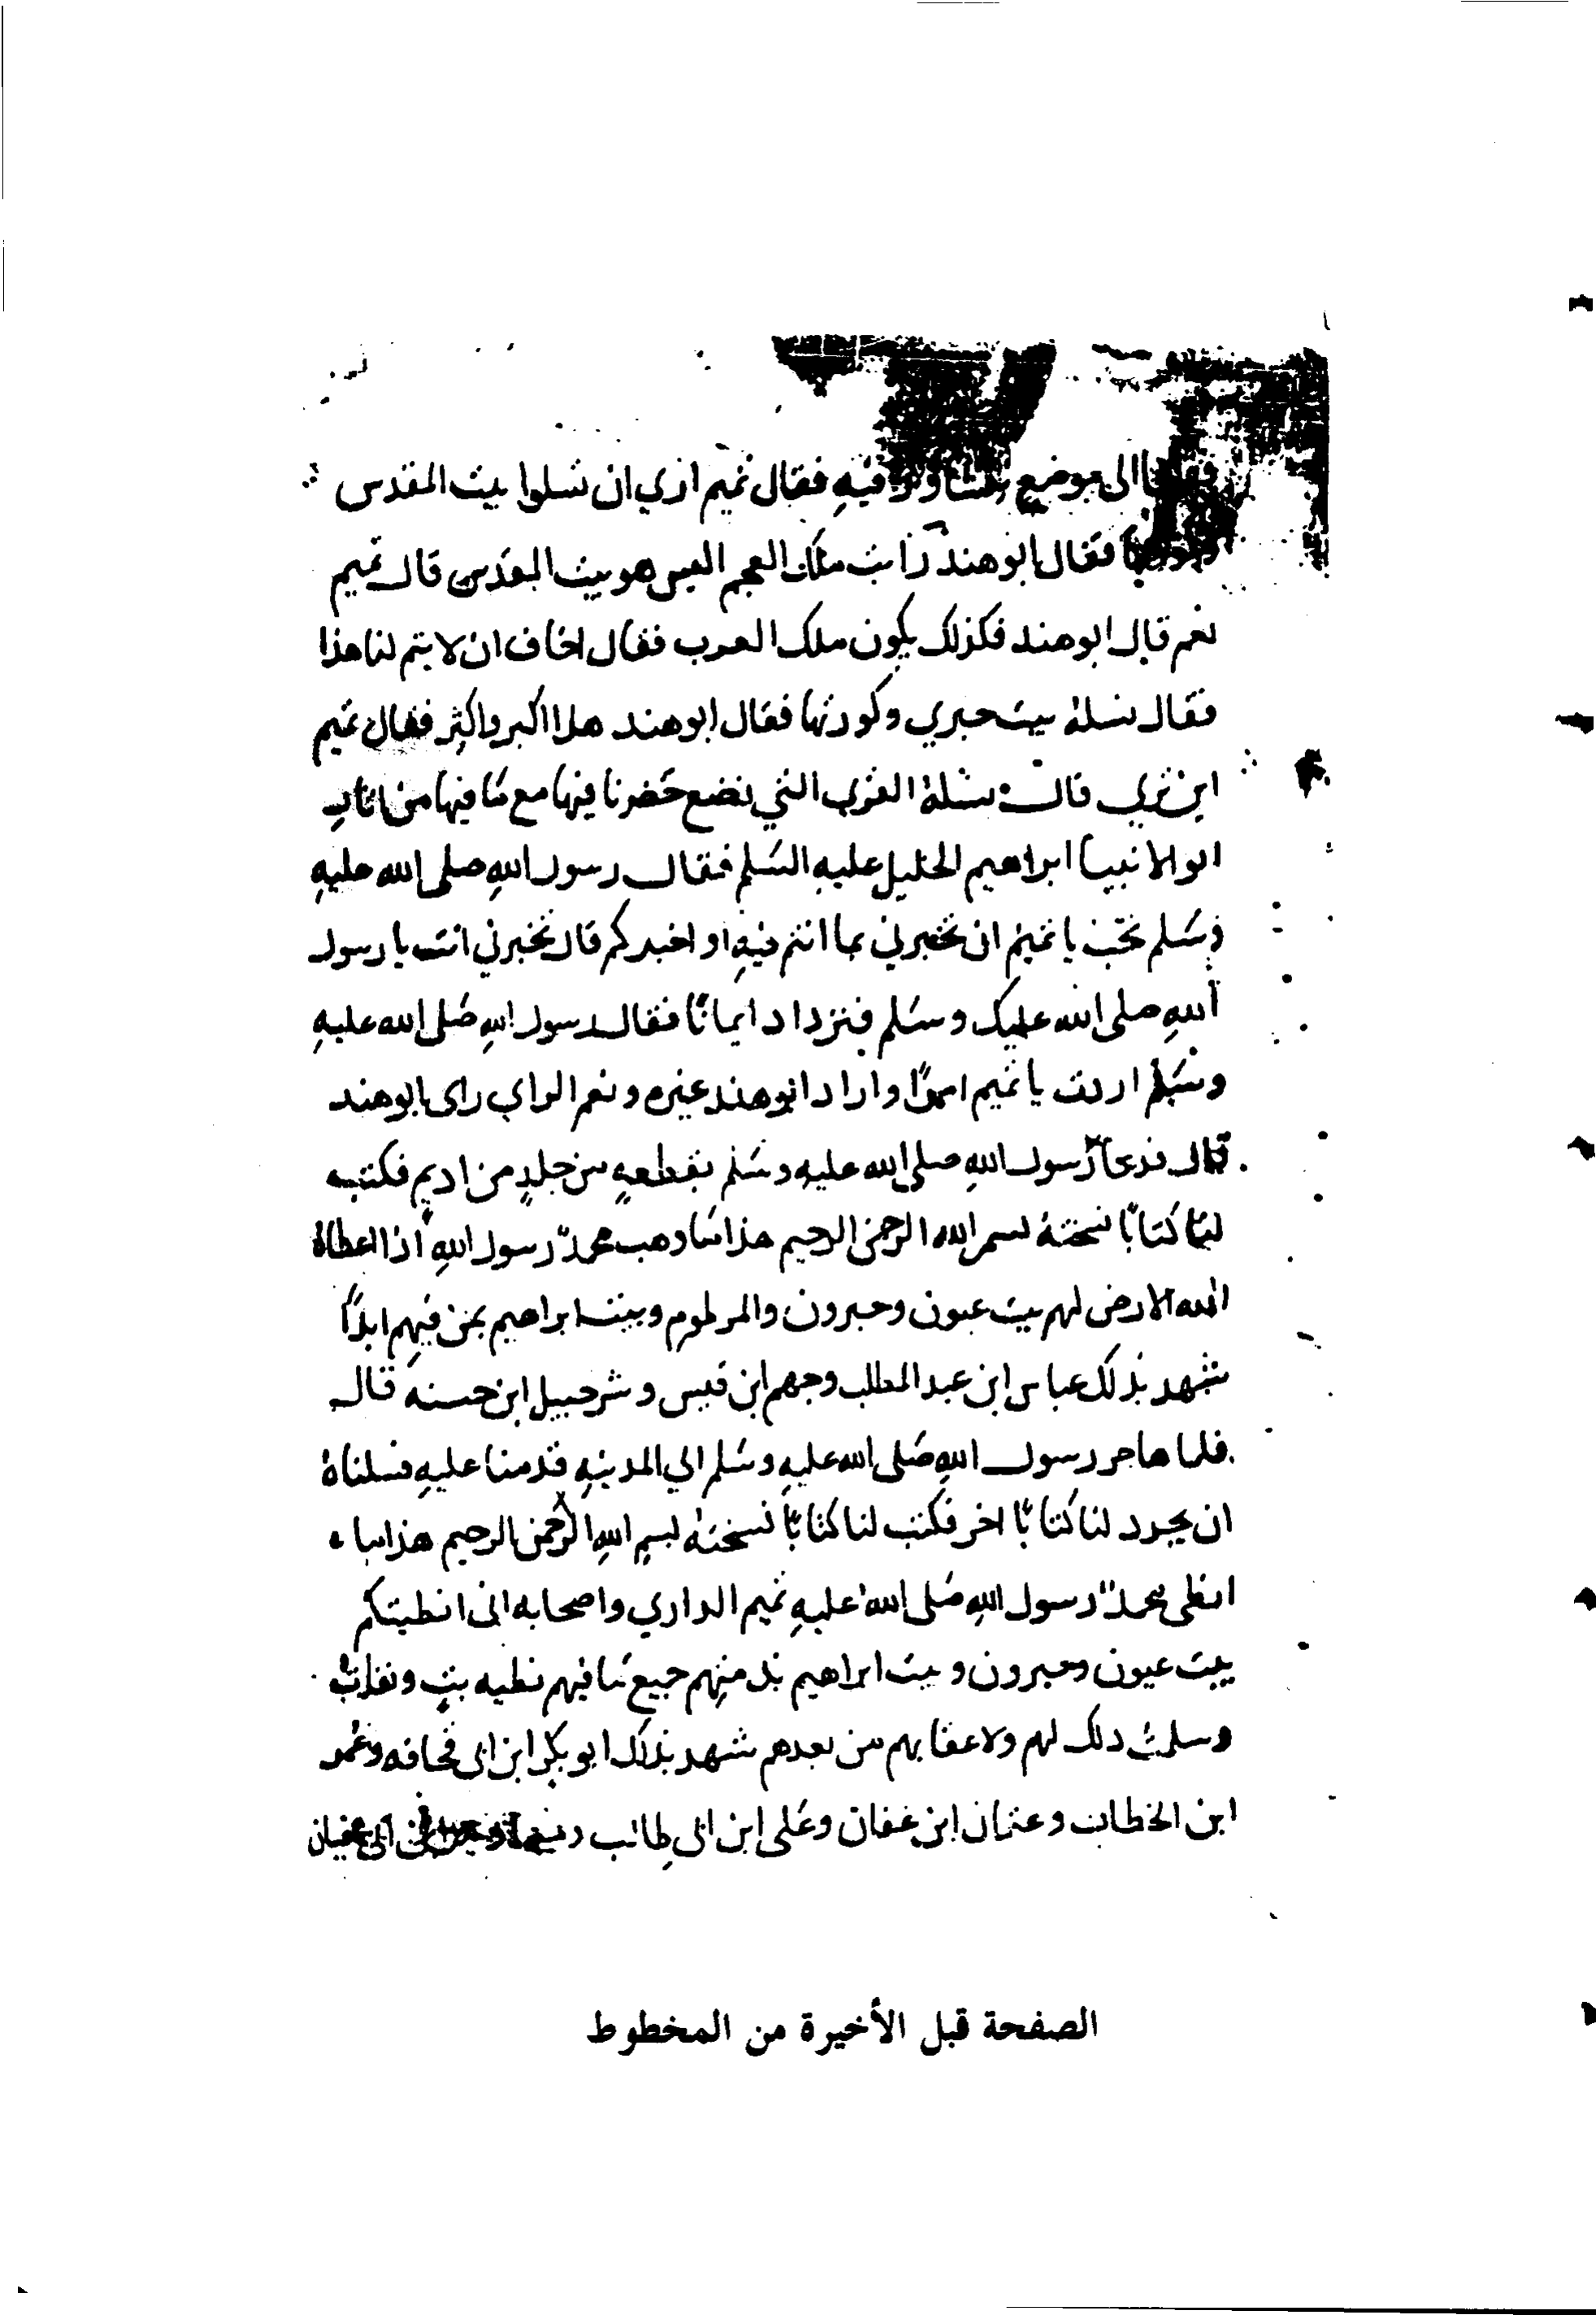 الى موضع نتشاور فيه فقال تميم اري ان نسلوا بيت المقدس
فقال ابو هند رايت ملك العجم اليس هو بيت المقدس قال تميم
نعم قال ابو هند فكذلك يكون ملك العرب فقال اخاف ان لا يتم لنا هذا
فقال نسله بيت حبري وكورتها فقال ابو هند هذا اكبر واكثر فقال تميم
اين تري قال نسله القري التي نضع حصرنا فيها مع ما فيها من اثار
ابو الانبيا ابراهيم الخليل عليه السلم فقال رسول الله صلى الله عليه
وسلم تحب يا تميم ان تخبرني بما انتم فيه او اخبركم قال تخبرني انت يا رسول
الله صلى الله عليك وسلم فنزداد ايمانًا فقال رسول الله صلى الله عليه
وسلم اردت يا تميم امرًا واراد ابو هند غيره ونعم الراي راى ابو هند
قال فدعا رسول الله صلى الله عليه وسلم بقطعةٍ من جلدٍ من اديم فكتب
لنا كتابًا نسخته بسم الله الرحمن الرحيم هذا ما وهب محمدٌ رسول الله اذا اعطاه
الله الارض لهم بيت عيون وحبرون والمرطوم وبيت ابراهيم بمن فيهم ابدًا
شهد بذلك عباس ابن عبد المطلب وجهم ابن قيس وشرحبيل ابن حسنه قال
فلما هاجر رسول الله صلى الله عليه وسلم الي المدينه قدمنا عليه فسلناه
ان يجدد لنا كتابًا اخر فكتب لنا كتابًا نسخته بسم الله الرحمن الرحيم هذا ما
انطى محمدٌ رسول الله صلى الله عليه تميم الداري واصحابه انى انطيتكم
بيت عيون وحبرون وبيت ابراهيم بذمتهم جميع ما فيهم نطيه بتٍ ونفذت
وسلمت ذلك لهم ولاعقابهم من بعدهم شهد بذلك ابو بكر ابن ابي قحافه وعمر
ابن الخطاب وعثمان ابن عفان وعلى ابن ابي طالب
الصفحة قبل الأخيرة من المخطوط